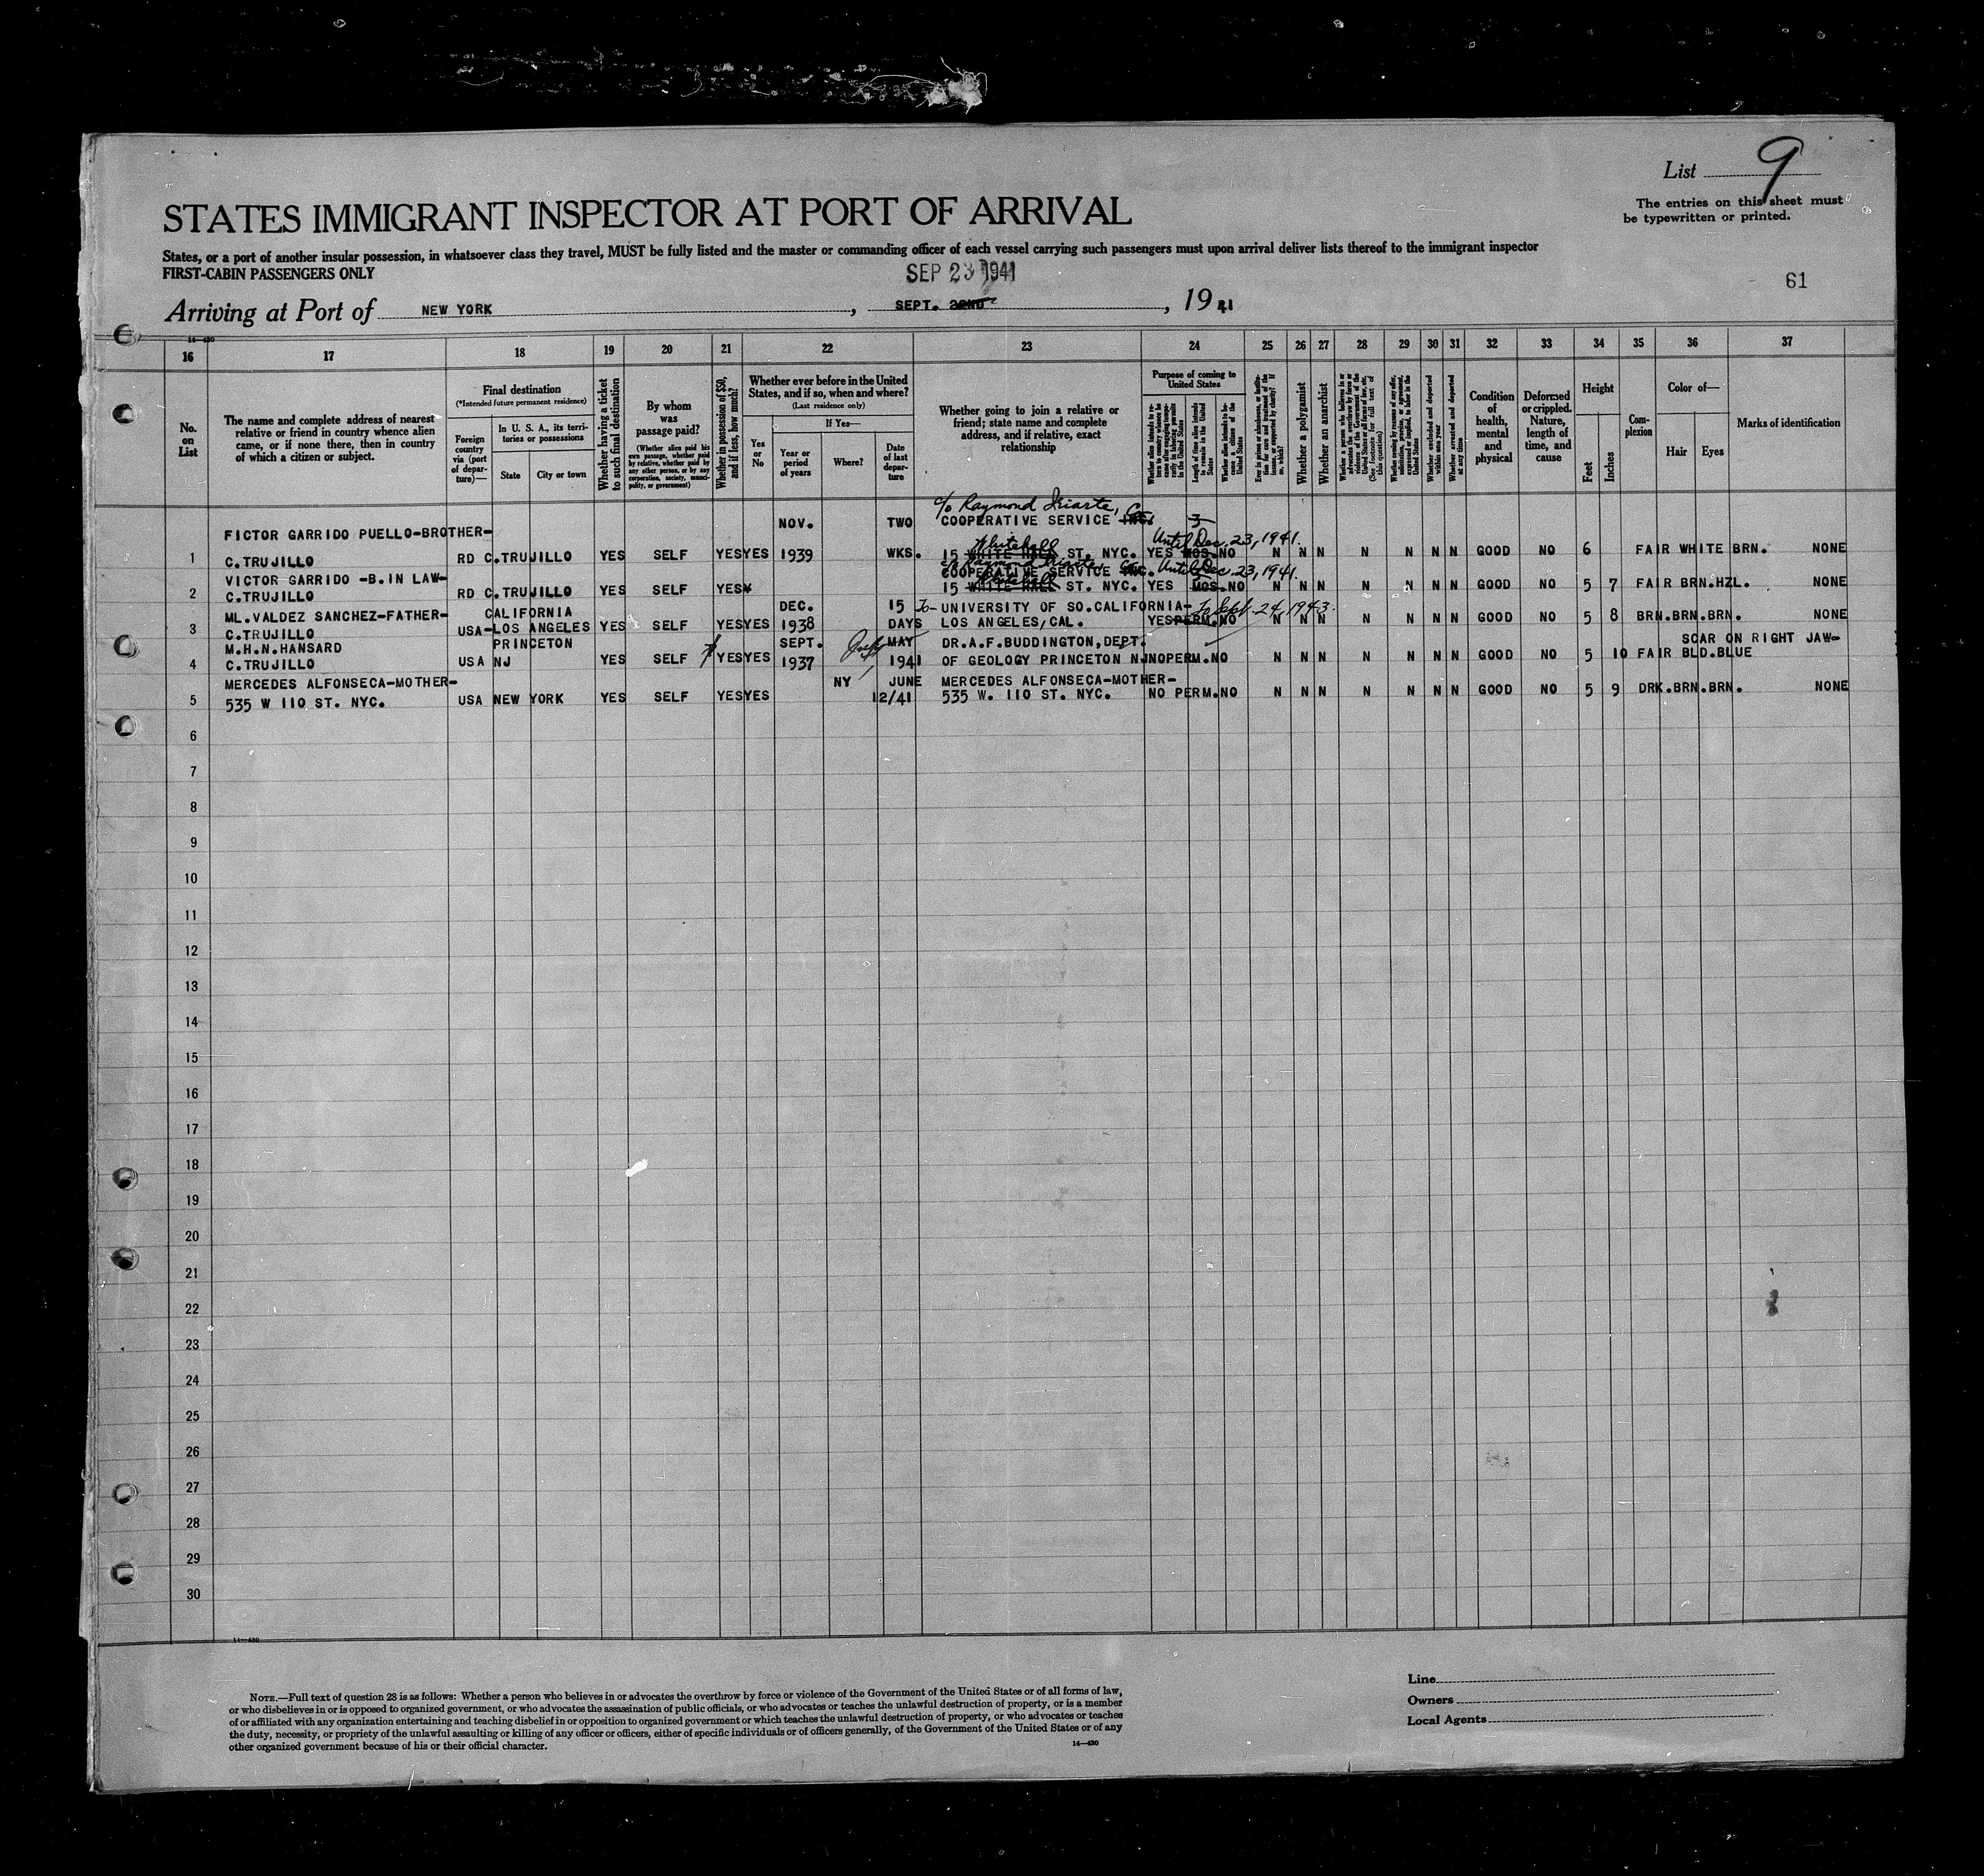 List 9
The entries on this sheet must
be typewritten or printed.
STATES IMMIGRANT INSPECTOR AT PORT OF ARRIVAL
States, or a port of another insular possession, in whatsoever class they travel, MUST be fully listed and the master or commanding officer of each vessel carrying such passengers must upon arrival deliver lists thereof to the immigrant inspector
FIRST-CABIN PASSENGERS ONLY
SEP 23 1941
61
Arriving at Port of NEW YORK, SEPT. 22ND, 19 41
14—430
16 17 18 19 20 21 22 23 24 25 26 27 28 29 30 31 32 33 34 35 36 37
No. on List
The name and complete address of nearest
relative or friend in country whence alien
came, or if none there, then in country
of which a citizen or subject.
Final destination
(*Intended future permanent residence)
Foreign country via (port of departure)—
In U. S. A., its territories or possessions
State
City or town
Whether having a ticket to such final destination
By whom was passage paid?
(Whether alien paid his own passage, whether paid by relative, whether paid by any other person, or by any corporation, society, municipality, or government)
Whether in possession of $50, and if less, how much?
Whether ever before in the United States, and if so, when and where?
(Last residence only)
Yes or No
If Yes—
Year or period of years
Where?
Date of last departure
Whether going to join a relative or
friend; state name and complete
address, and if relative, exact
relationship
Purpose of coming to United States
Length of time alien intends to remain in the United States
Whether a polygamist
Whether an anarchist
(See footnote for full text of this question)
Whether excluded and deported within one year
Whether arrested and deported at any time
Condition of health, mental and physical
Deformed or crippled. Nature, length of time, and cause
Height
Feet
Inches
Complexion
Color of—
Hair
Eyes
Marks of identification
c/o Raymond Iriarte,
FICTOR GARRIDO PUELLO-BROTHER- NOV. TWO COOPERATIVE SERVICE INC. 3
Whitehall Until Dec. 23, 1941.
1 C.TRUJILLO RD C.TRUJILLO YES SELF YES YES 1939 WKS. 15 WHITE HALL ST. NYC. YES MOS. NO N N N N N N N GOOD NO 6 FAIR WHITE BRN. NONE
c/o Raymond Iriarte, Until Dec. 23, 1941.
VICTOR GARRIDO -B.IN LAW- COOPERATIVE SERVICE INC.
Whitehall
2 C.TRUJILLO RD C.TRUJILLO YES SELF YES 15 WHITE HALL ST. NYC. YES MOS. NO N N N N N N N GOOD NO 5 7 FAIR BRN.HZL. NONE
ML.VALDEZ SANCHEZ-FATHER- CALIFORNIA DEC. 15 To- UNIVERSITY OF SO.CALIFORNIA- To Sept. 24, 1943.
3 C.TRUJILLO USA-LOS ANGELES YES SELF YES YES 1938 DAYS LOS ANGELES, CAL. YES PERM. NO N N N N N N N GOOD NO 5 8 BRN.BRN.BRN. NONE
M.H.N.HANSARD PRINCETON SEPT. July MAY DR.A.F.BUDDINGTON,DEPT. SCAR ON RIGHT JAW-
4 C.TRUJILLO USA NJ YES SELF YES YES 1937 1941 OF GEOLOGY PRINCETON NJ NO PERM.NO N N N N N N N GOOD NO 5 10 FAIR BLD.BLUE
MERCEDES ALFONSECA-MOTHER- NY JUNE MERCEDES ALFONSECA-MOTHER-
5 535 W 110 ST. NYC. USA NEW YORK YES SELF YES YES 12/41 535 W. 110 ST. NYC. NO PERM.NO N N N N N N N GOOD NO 5 9 DRK.BRN.BRN. NONE
6
7
8
9
10
11
12
13
14
15
16
17
18
19
20
21
22
23
24
25
26
27
28
29
30
14—430
Line
Owners
Local Agents
NOTE.—Full text of question 28 is as follows: Whether a person who believes in or advocates the overthrow by force or violence of the Government of the United States or of all forms of law,
or who disbelieves in or is opposed to organized government, or who advocates the assassination of public officials, or who advocates or teaches the unlawful destruction of property, or is a member
of or affiliated with any organization entertaining and teaching disbelief in or opposition to organized government or which teaches the unlawful destruction of property, or who advocates or teaches
the duty, necessity, or propriety of the unlawful assaulting or killing of any officer or officers, either of specific individuals or of officers generally, of the Government of the United States or of any
other organized government because of his or their official character.
14—430